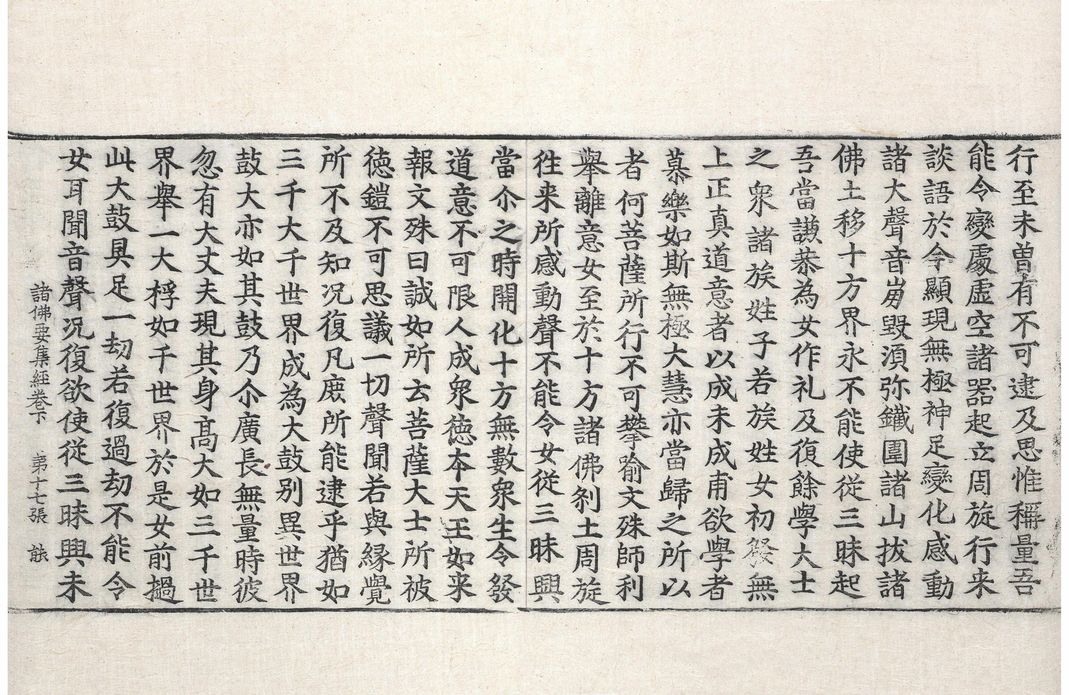 行至未曾有不可逮及思惟稱量吾
能令變處虛空諸器起立周旋行来
談語於令顯現無極神足變化感動
諸大聲音崩毀須弥鐵圍諸山拔諸
佛土移十方界永不能使從三昧起
吾當謙恭為女作礼及復餘學大士
之衆諸族姓子若族姓女初發無
上正真道意者以成未成甫欲學者
慕樂如斯無極大慧亦當歸之所以
者何菩薩所行不可攀喻文殊師利
舉離意女至於十方諸佛刹土周旋
往来所感動聲不能令女從三昧興
當尒之時開化十方無數衆生令發
道意不可限人成衆徳本天王如来
報文殊曰誠如所云菩薩大士所被
徳鎧不可思議一切聲聞若與緣覺
所不及知况復凡庶所能逮乎猶如
三千大千世界成為大鼓別異世界
鼓大亦如其鼓乃尒廣長無量時彼
忽有大丈夫現其身髙大如三千世
界舉一大桴如千世界於是女前撾
此大鼓具足一劫若復過劫不能令
女耳聞音聲况復欲使從三昧興未
諸佛要集経卷下 第十七張